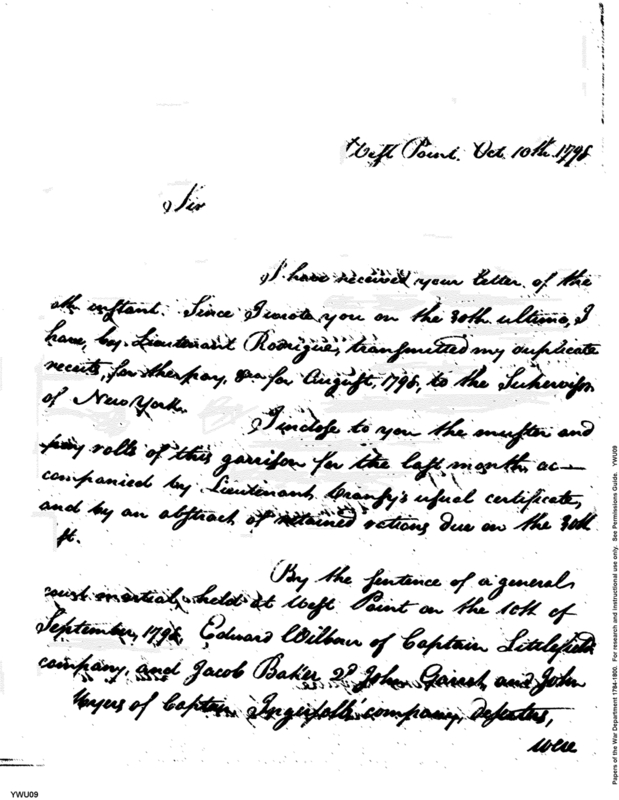 West Point. Oct. 10th. 1798
Sir
I have received your letter of the
8th instant. Since I wrote you on the 30th ultimo, I
have, by Lieutenant Rodrigue, transmitted my duplicate
receits, for the pay, &ca for August, 1798, to the Supervisor
of New York.
I inclose to you the muster and
pay rolls of this garrison for the last month, ac—
companied by Lieutenant usual certificate,
and by an abstract of retained rations due on the 30th
By the sentence of a general
court martial, held at West Point on the 10th of
September, 1798, Edward Wilbour of Captain Littlefield
company, and Jacob Baker, 2d John Garret, and John
Myers of Captain Ingersoll's company, deserters,
were
YWU09
Papers of the War Department 1784-1800. For research and instructional use only. See Permissions Guide. YWU09